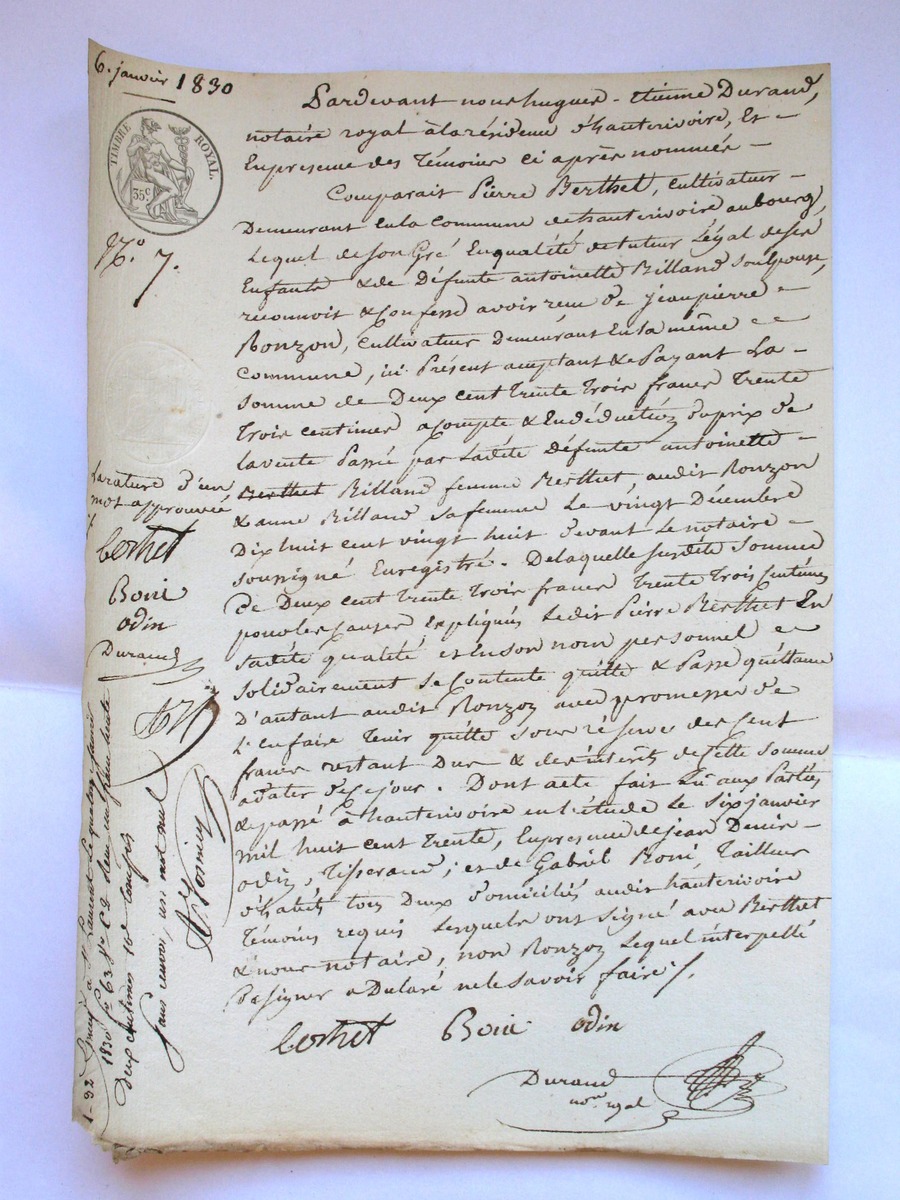 6. janvier 1830
TIMBRE ROYAL.
35 c.
N.o 7.
Pardevant nous hugues-Etienne Durand,
notaire royal à la résidence d'hauterivoire, Et
En presence des Témoins ci après nommés
Comparait Pierre Berthet, Cultivateur
Demeurant En la Commune de hauterivoire au bourg,
Lequel de son Gré En qualité de tuteur Légal de ses
Enfants & de Défunte antoinette Billand son Epouse,
reconnoit & Confesse avoir reçu de jean pierre
Ronzon, Cultivateur Demeurant En la même
Commune, ici Présent acceptant & Payant La
Somme de Deux Cent Trente Trois francs Trente
Trois Centimes acompte & En déduction du prix de
la vente Passée par Ladite Défunte antoinette
Berthet Billand femme Berthet, audit Ronzon
& anne Billand sa femme Le vingt Décembre
Dix huit cent vingt huit devant Le notaire
soussigné Enregistré. De laquelle susdite somme
De Deux Cent Trente Trois francs Trente Trois Centimes
pour les Causes Expliquées Ledit Pierre Berthet En
sadite qualité et en son nom personnel
solidairement se Contente quitte & Passe quittance
D'autant audit Ronzon avec promesse de
L'en faire Tenir quitte sous réserve des Cent
francs restant Dus & des intérêts de Cette Somme
adater de ce jour. Dont acte fait Lu aux Parties
& passé à hauterivoire en L'étude Le Six janvier
mil huit cent Trente, En presence de jean Denis
odin, Tisserand; et de Gabriel Boni, Tailleur
d'habits tous Deux domiciliés audit hauterivoire
Témoins requis Lesquels ont signé avec Berthet
& nous notaire, non Ronzon Lequel interpellé
De signer a Déclaré ne le savoir faire ./.
berthet Boni odin
Durand
nore royal
La rature d'un
mot approuvée
berthet
Boni
odin
Durand
Enregé à St Laurent Le quatorze janvier
1830 fo 63 Reçu un franc trente
deux centimes 10e Compris
sans renvoi, un mot nul
1-32